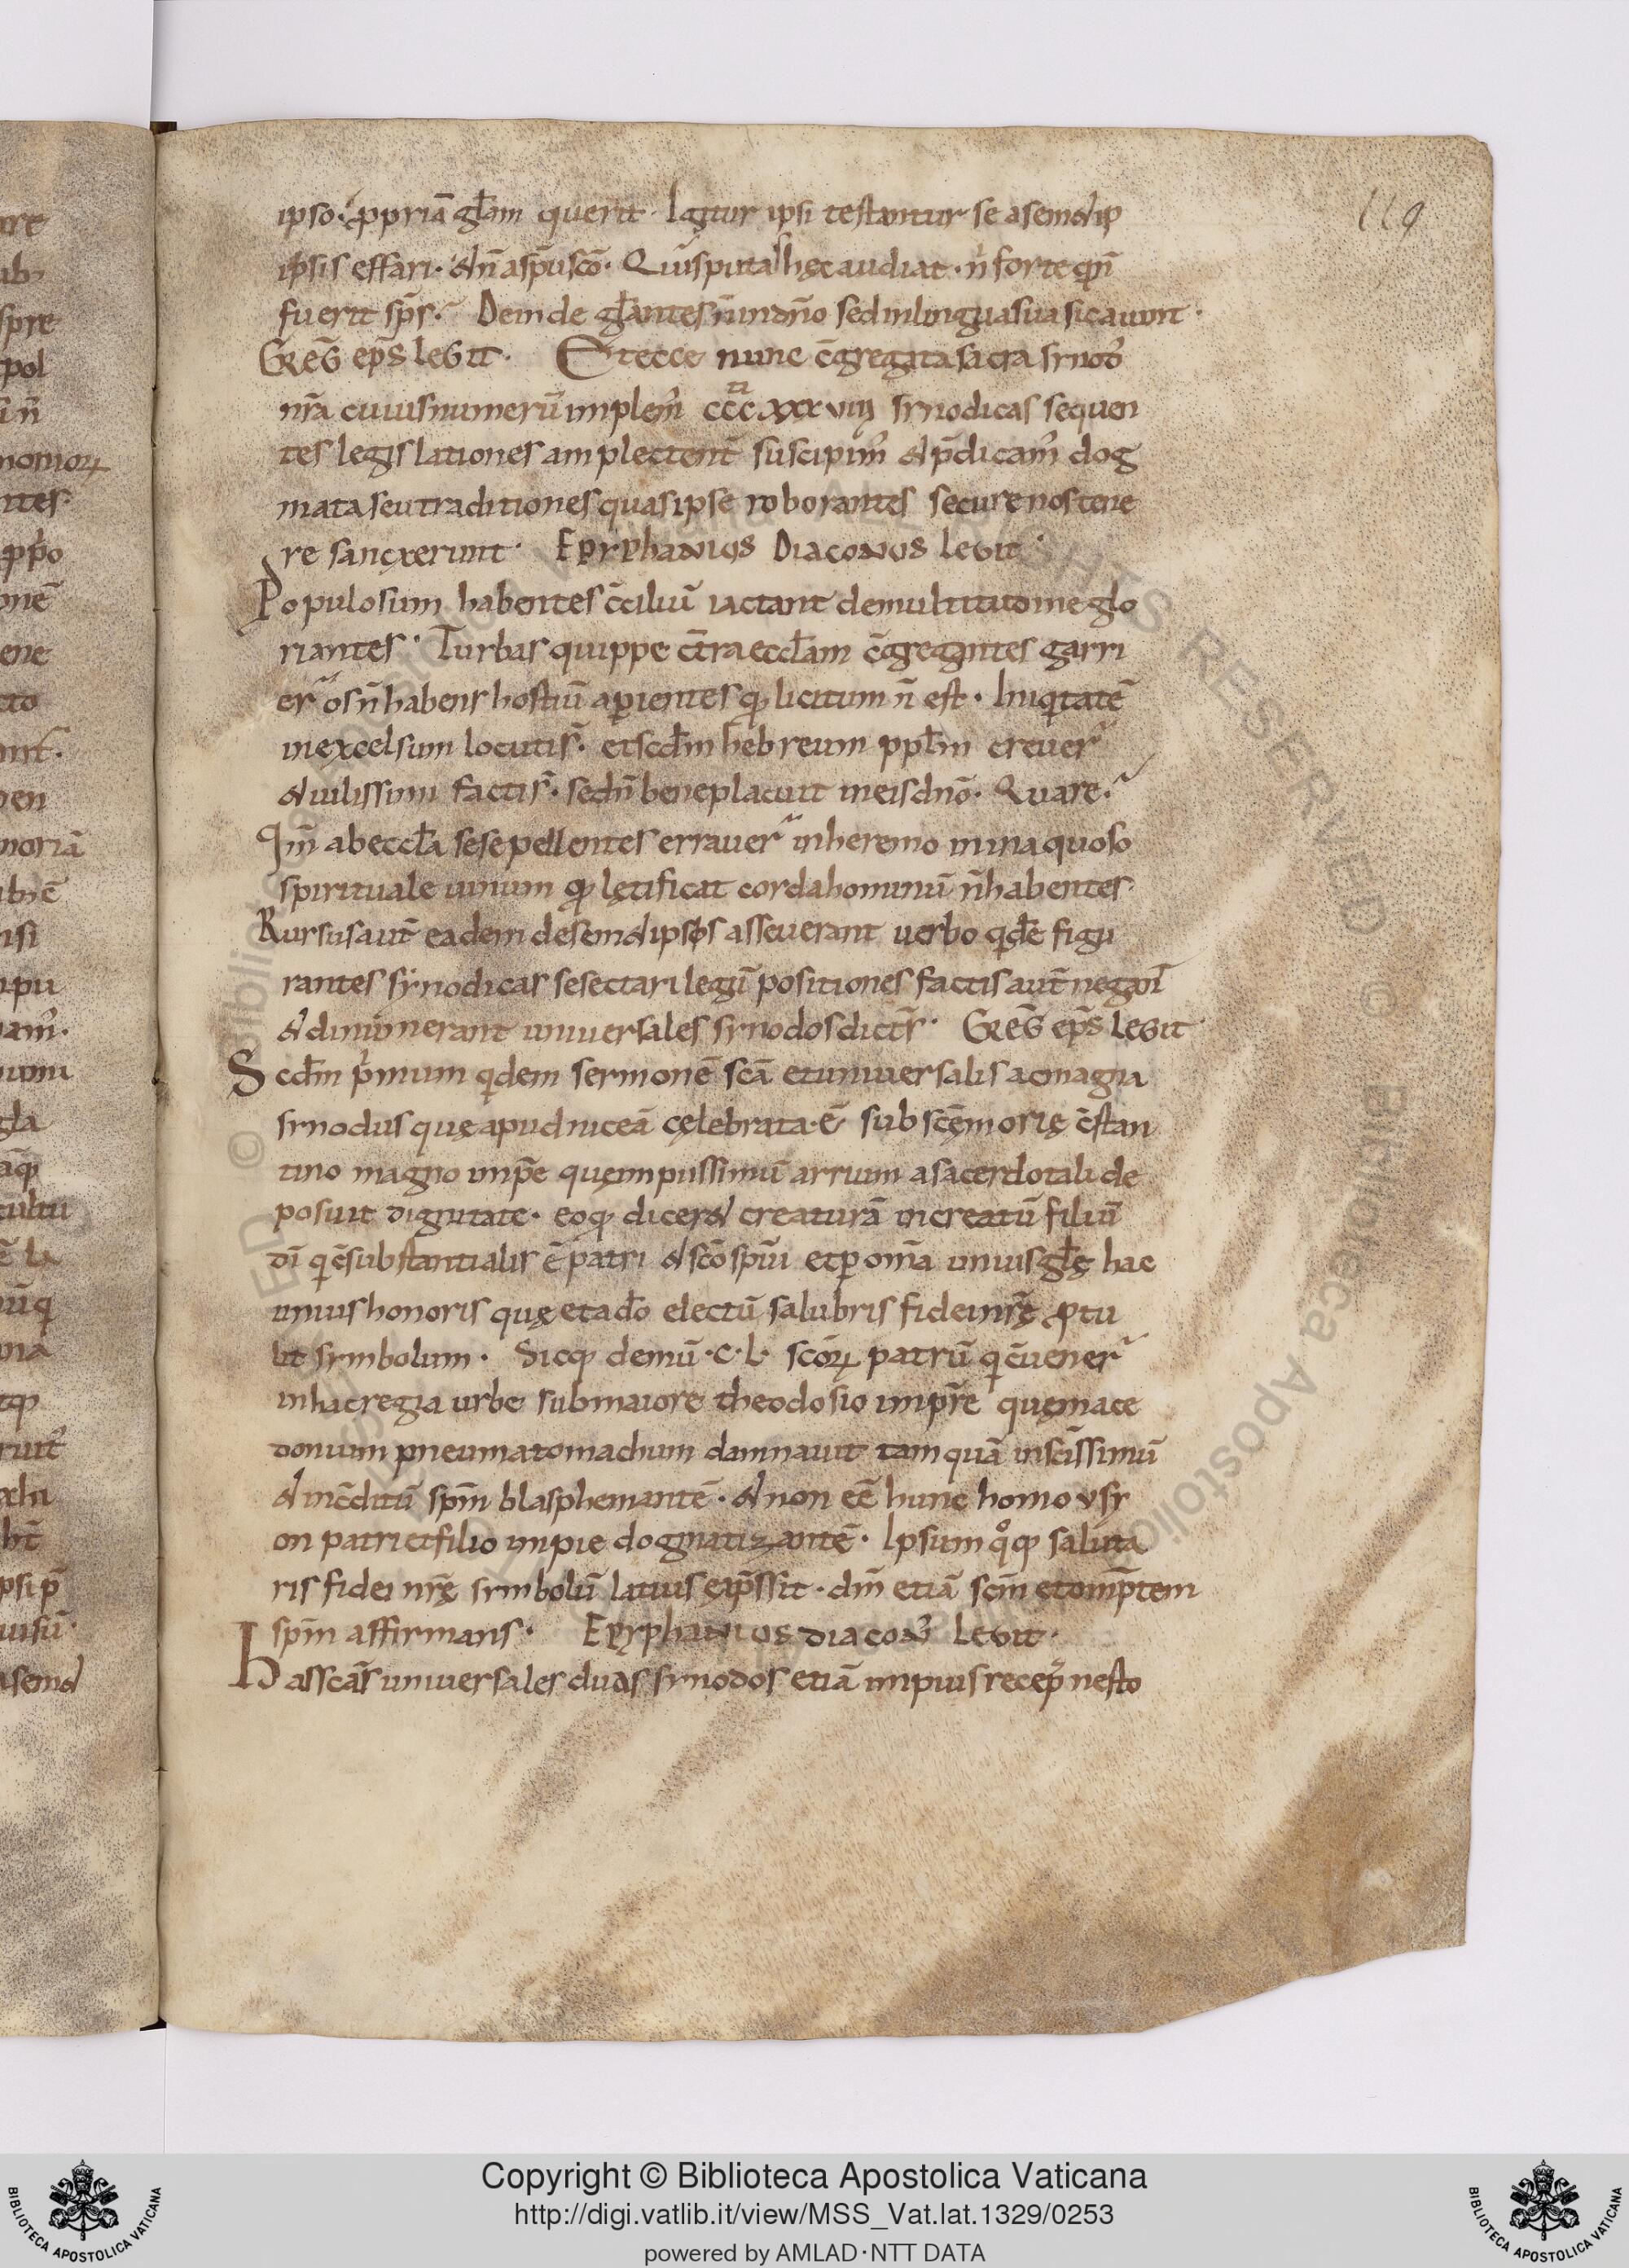 119
ipso· ꝓpriā gl̄am querit· Igitur ipsi testantur se asem&ip
ipsis effari· &n̄ asp̄u sc̄o· Quis putas hęc audiat· n̄ forte qn̄
fuerit sp̄s· Deinde gl̄antes n̄ indn̄o sed inlingua sua sicaiunt·
GREḠ EP̄S LEGIT· Et ecce nunc c̄gregata sacra synod'
nr̄a cuius numerū implem' cccxxxviii synodicas sequen
tes legislationes amplectent̄ suscipim' &p̄dicam' dog
mata seu traditiones quas ipse roborantes secure nos tene
re sancxerunt· EPYPHANIUS DIACONUS LEGIT·
Populosum habentes c̄ciliū iactant demultitudine glo
riantes· Turbas quippe c̄tra eccl̄am c̄gregantes garri
er̄ os n̄ habens hostiū aperientes qꝫ licitum n̄ est· Iniqitatē
inexcelsum locuti s̄· et scd̄m hebreum ppl̄m creuer̄
&uilissimi facti s̄· sed n̄ beneplacuit ineis dn̄o· Quare·
Qm̄ ab eccl̄a sese pellentes errauer̄ inheremo ininaquoso
spirituale uinum qꝫ lętificat corda hominū n̄ habentes
Rursus aut̄ eadem desem&ipsos asseuerant uerbo qidē figu
rantes synodicas se sectari legū positiones factis aut̄ negant
&dinumerant uniuersales synodos dict̄s· GREḠ EP̄S LEGIT
Scd̄m p'mum qidem sermonē sc̄a et uniuersalis acmagna
synodus quę apud niceā cęlebrata·ē sub sc̄ę morię c̄stan
tino magno imp̄e quę impiissimū arrium asacerdotali de
posuit dignitate· eo qꝫ dicer& creaturā increatū filiū
dī qi c̄substantialis ē patri &sc̄o sp̄ui et ꝑ om̄a unius gl̄ę hac
unius honoris quę et ad dō electū salubris fidei nr̄ę ꝓtu
lit symbolum· Sicqꝫ demū ·c·l· sc̄oꝝ patrū qi c̄uener̄
inhac regia urbe sub maiore theodosio imp̄re quę mace
donium pneumatomachum damnauit tamquā insc̄issimū
&inc̄ditū sp̄m blasphemantē· &non eē hunc homousy
on patri et filio impie dogmatizantē· Ipsum qoqꝫ saluta
ris fidei nr̄ę symbolū latius exp̄ssit· dn̄m etiā sc̄m et omp̄tem
sp̄m affirmans· EPYPHANIUS DIACON' LEGIT·
Has sc̄as uniuersales duas synodos etiā impius recepit nesto
Copyright © Biblioteca Apostolica Vaticana
http://digi.vatlib.it/view/MSS_Vat.lat.1329/0253
powered by AMLAD·NTT DATA
BIBLIOTECA APOSTOLICA VATICANA
BIBLIOTECA APOSTOLICA VATICANA